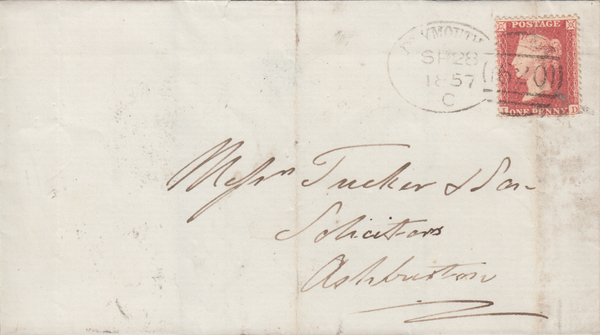 PLYMOUTH
SP 28
1857
C
620
POSTAGE
ONE PENNY
Messrs Tucker & Son
Solicitors
Ashburton